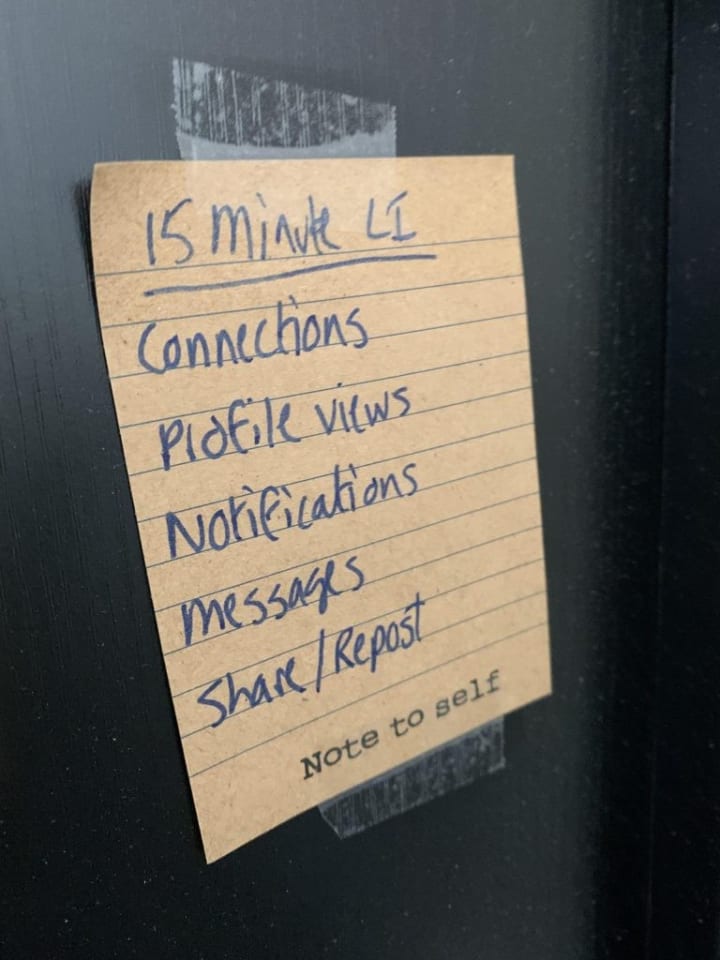 15 Minute LI
Connections
Profile views
Notifications
Messages
Share/Repost
Note to self